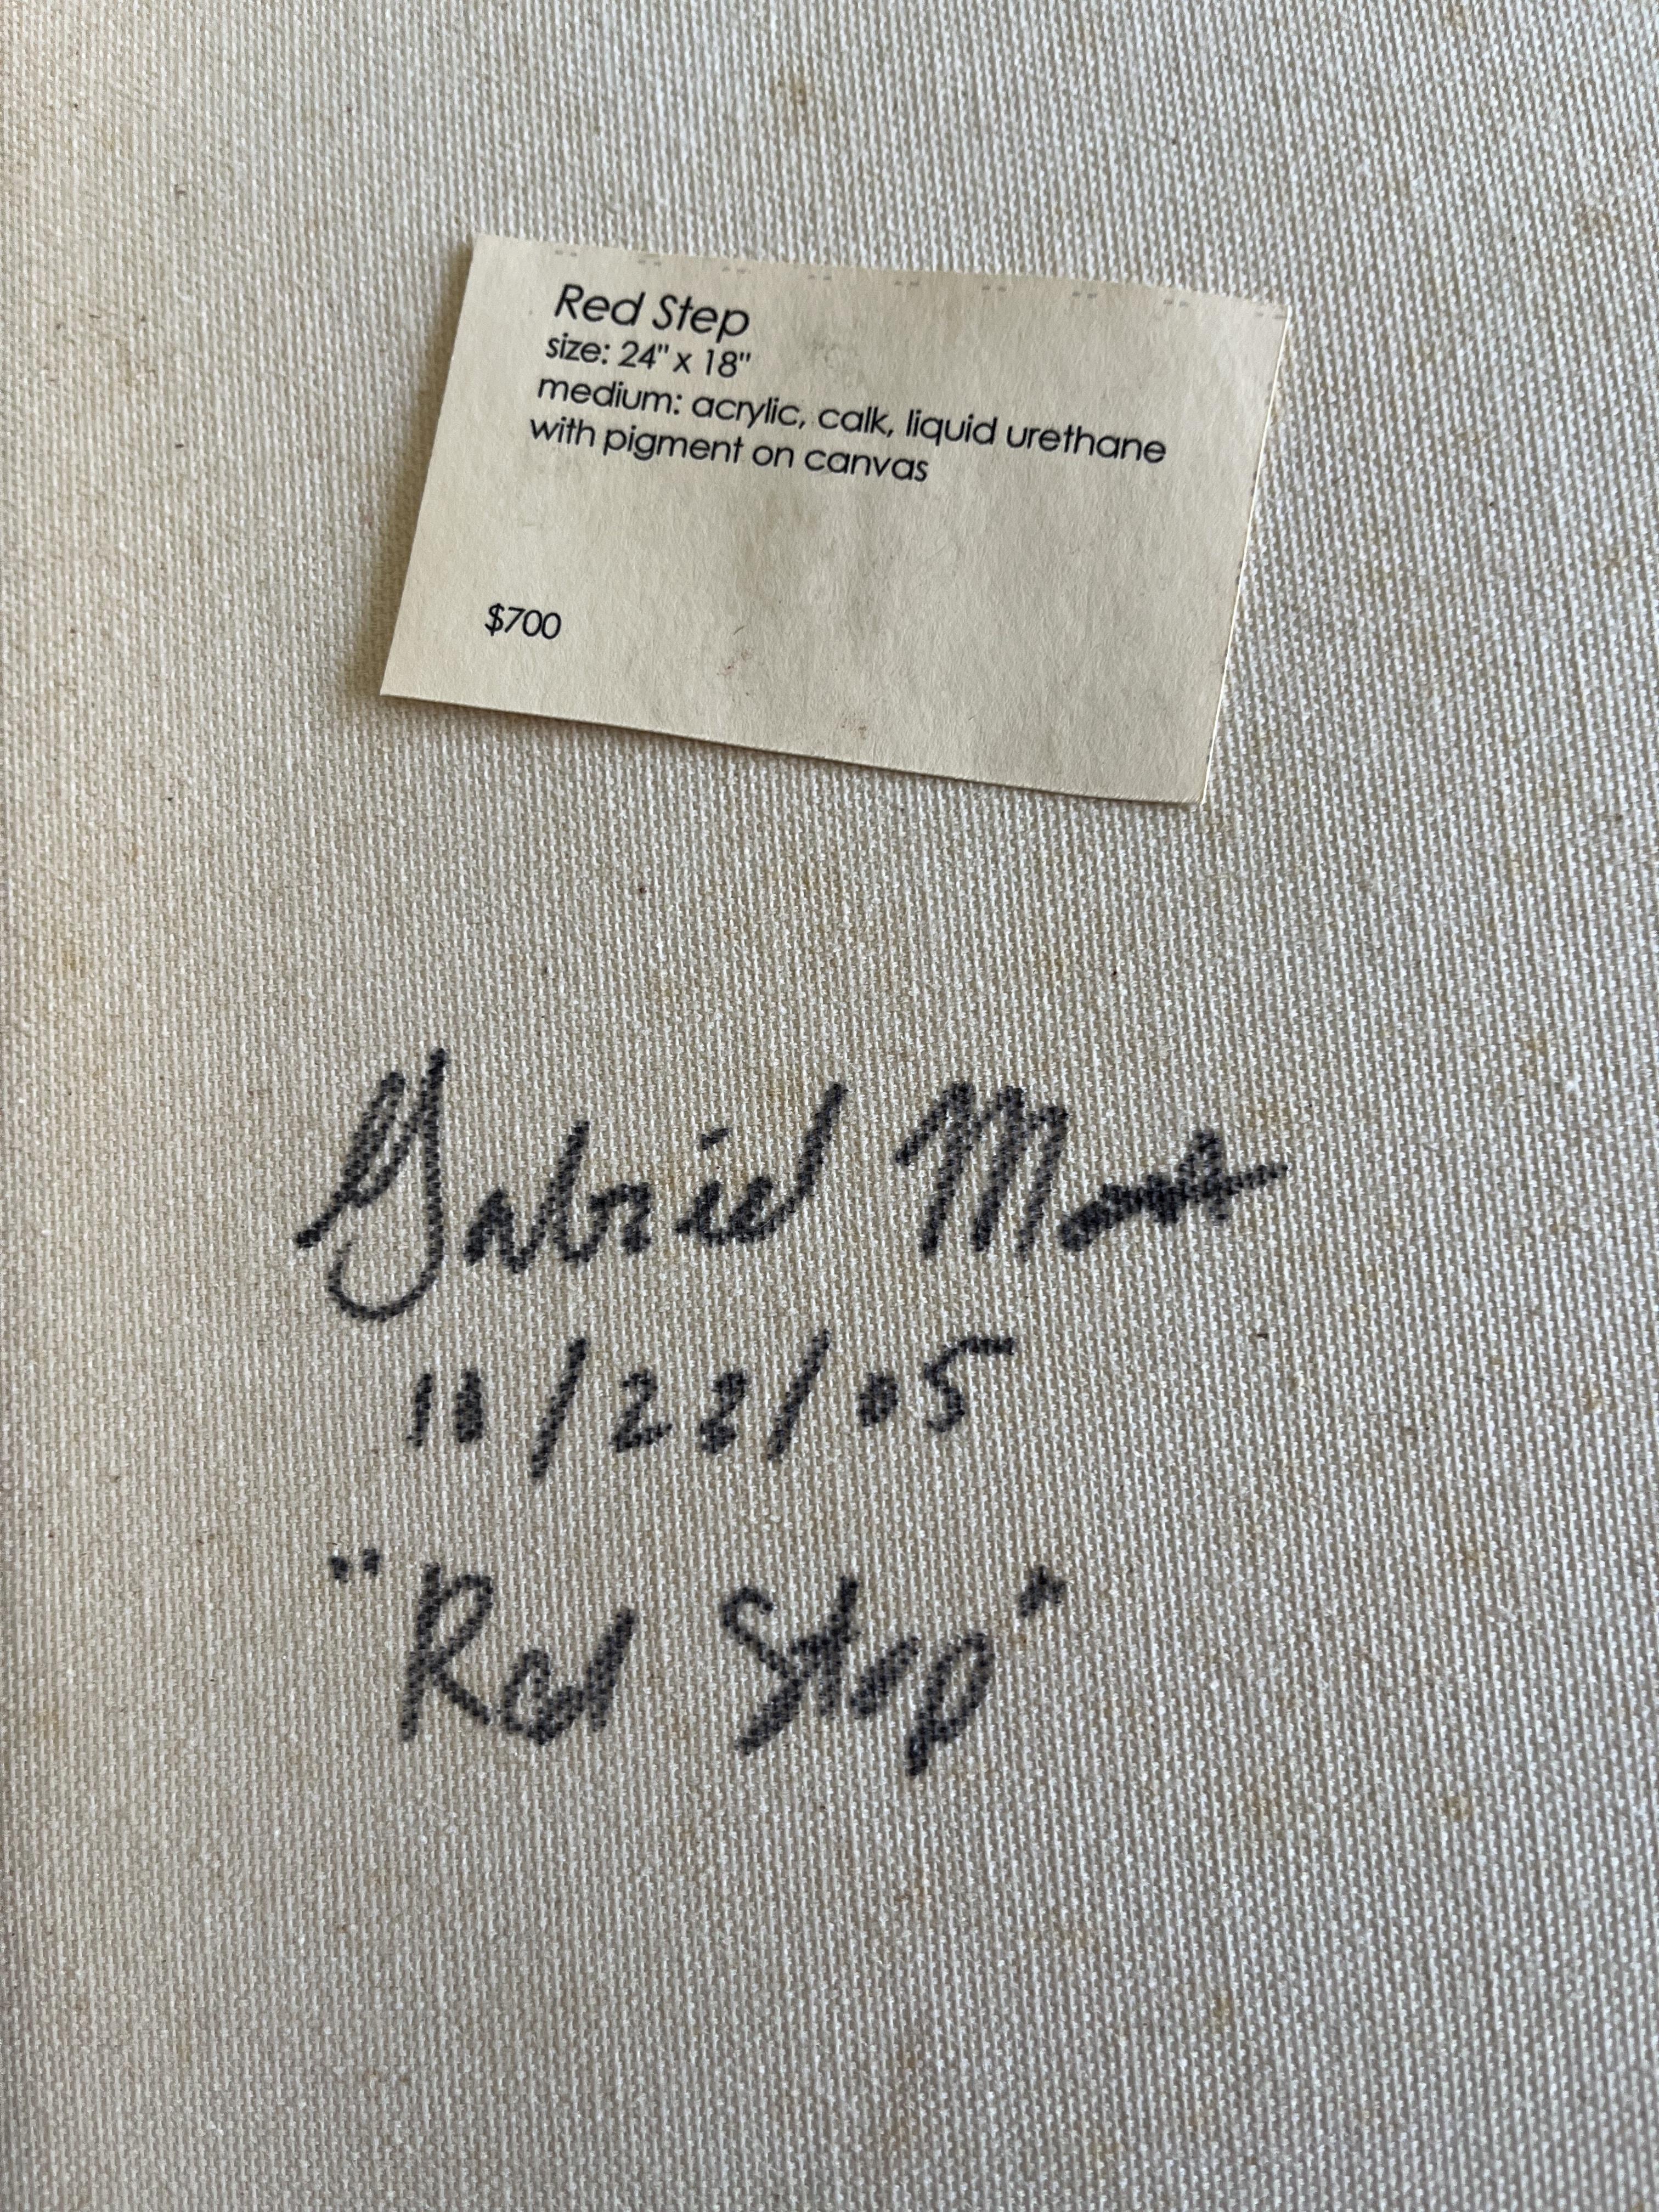 Red Step
size: 24" x 18"
medium: acrylic, calk, liquid urethane
with pigment on canvas
$700
Gabriel
11/22/05
"Red Step"